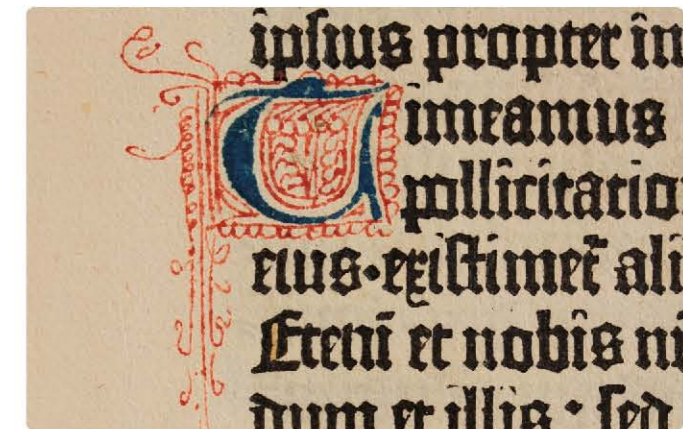 ipſius propter in
Timeamus
pollicitatio
eius·exiſtimet᷑ ali
Etenī et nobis
dum et illis : ſed